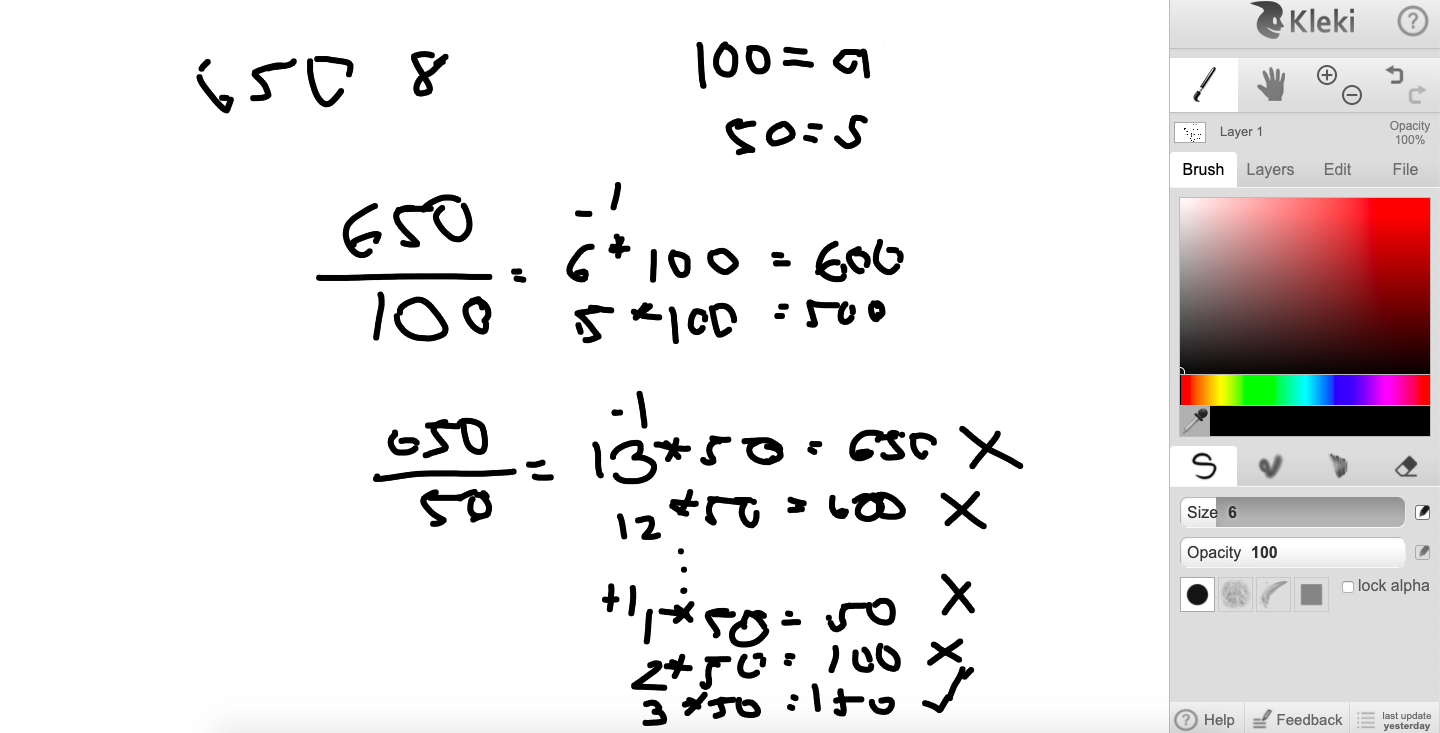 650 8
100 = a
50 = s
650
100
=
-1
6 * 100 = 600
5 * 100 = 500
650
50
=
-1
13 * 50 = 650 X
12 * 50 = 600 X
+1
1 * 50 = 50 X
2 * 50 = 100 X
3 * 50 = 150 ✓
Kleki
?
Layer 1
Opacity
100%
Brush Layers Edit File
Size 6
Opacity 100
lock alpha
? Help
Feedback
last update
yesterday